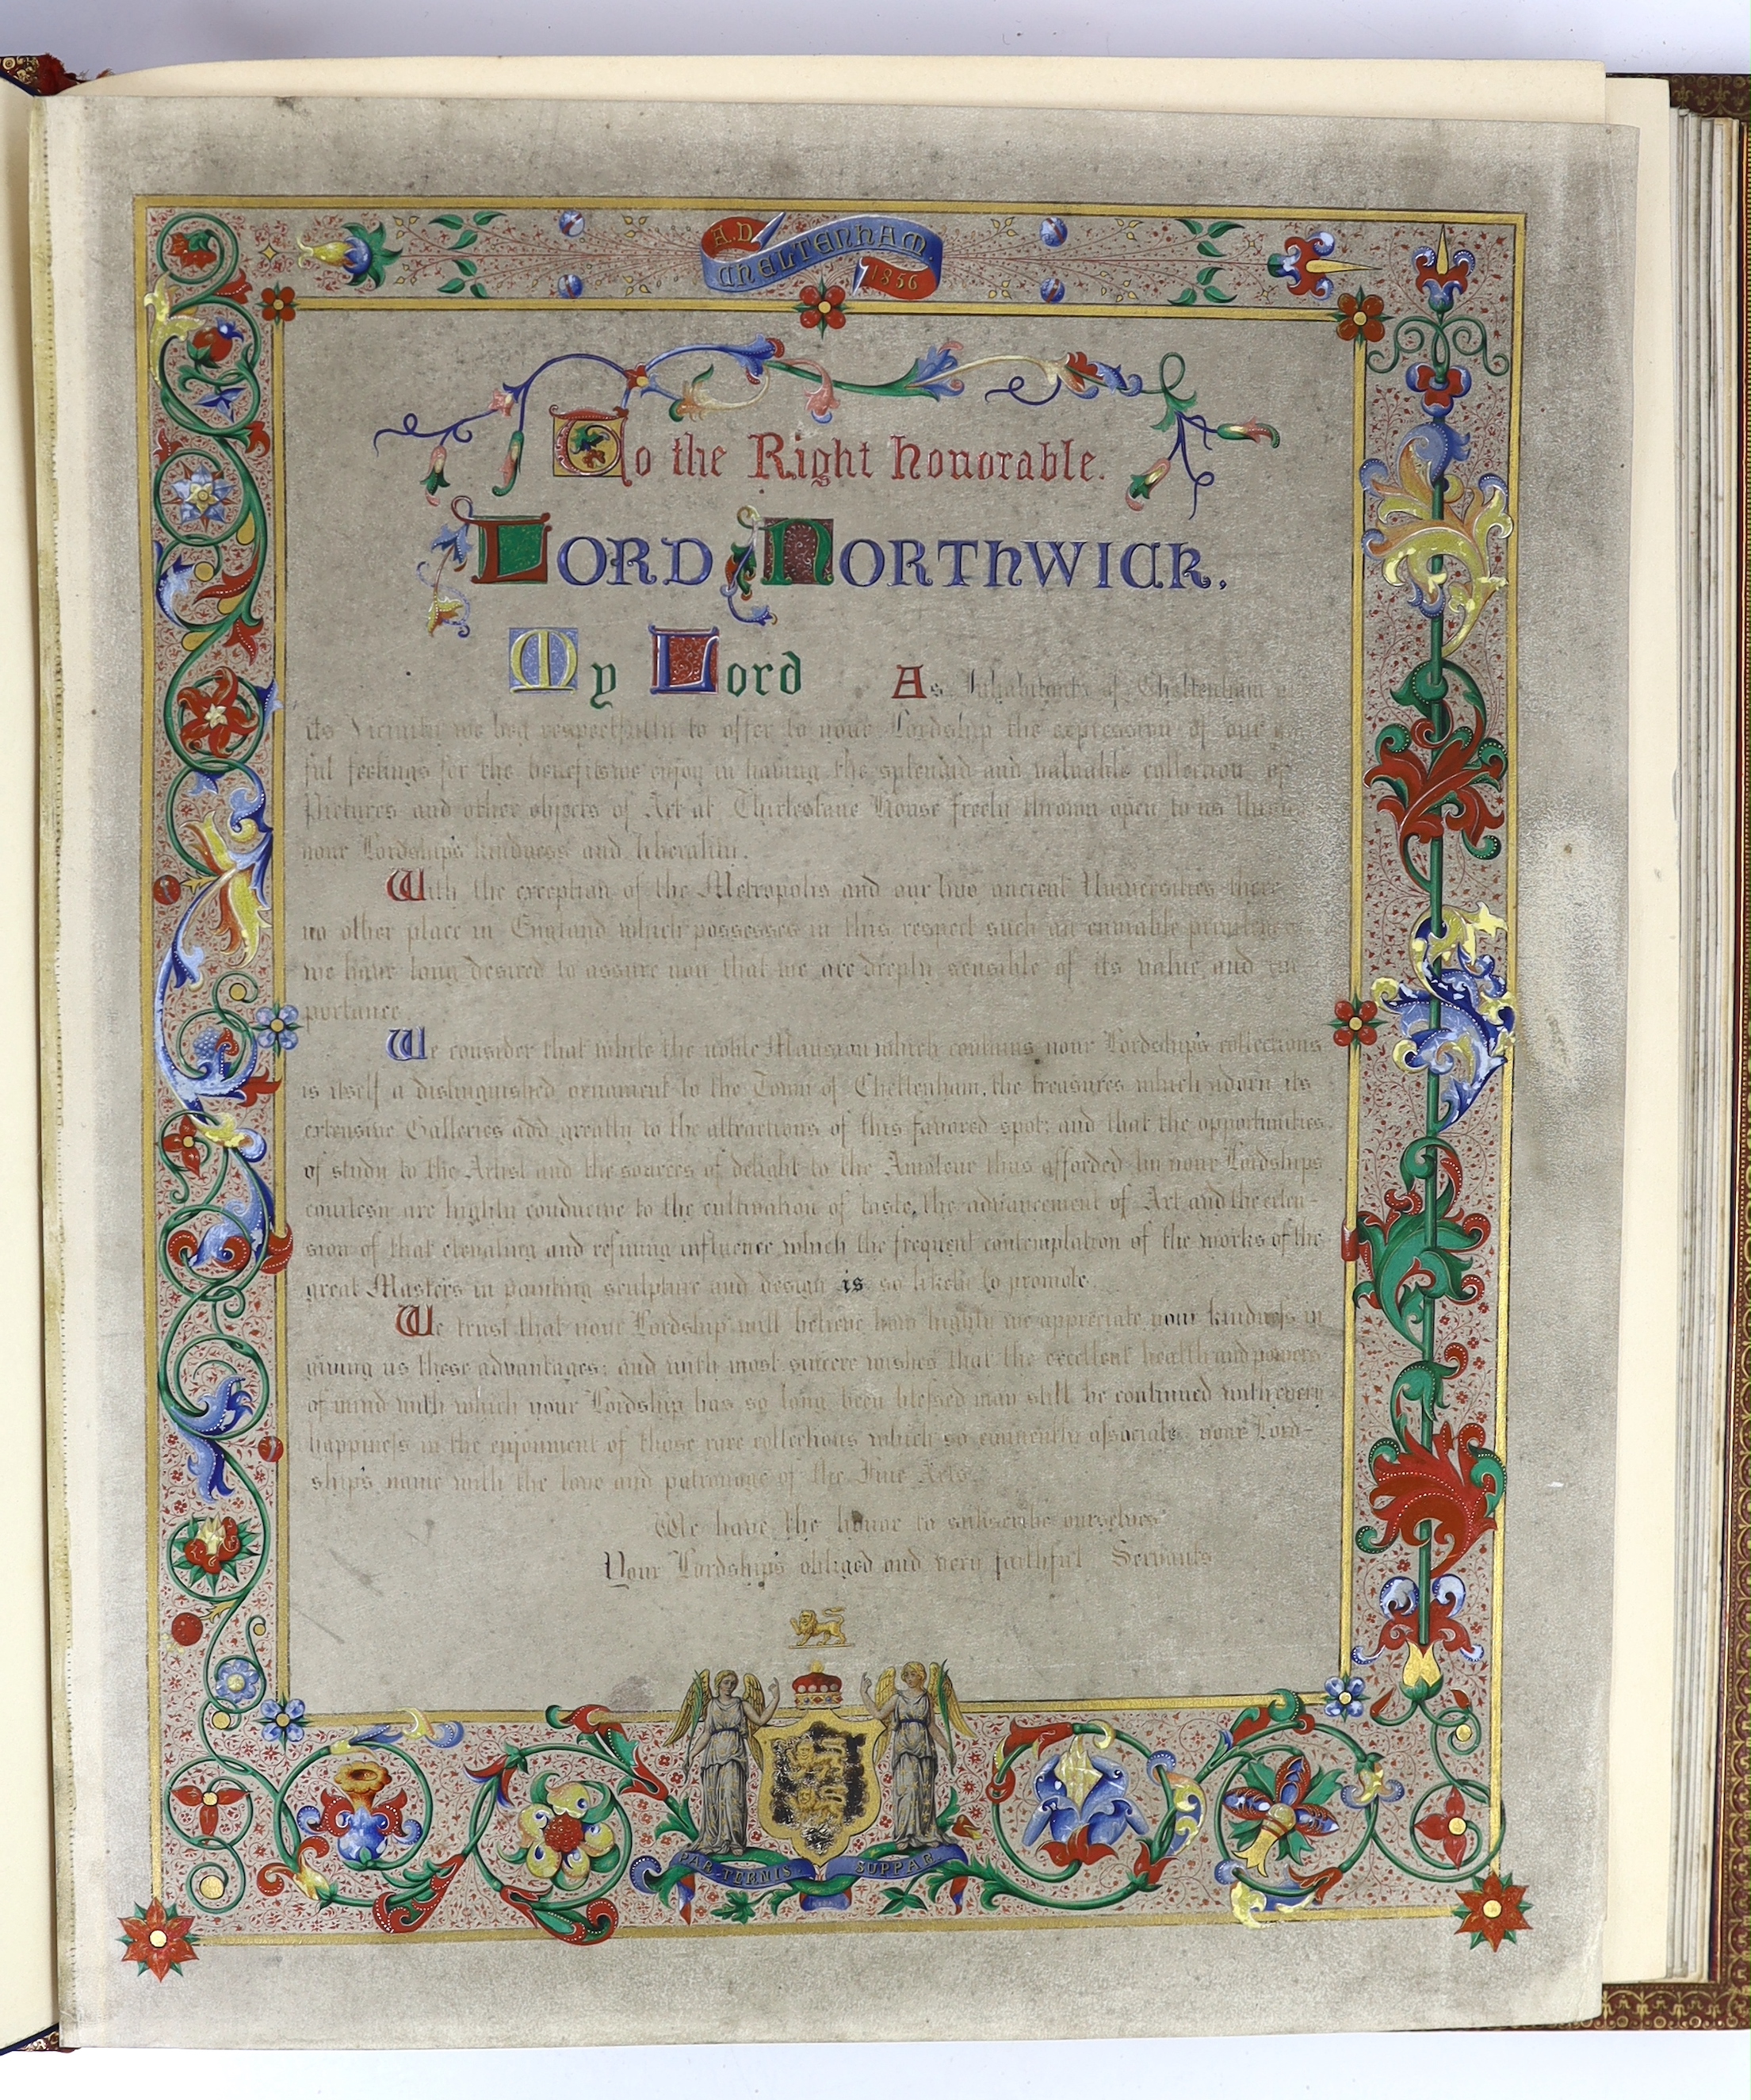 A.D.
CHELTENHAM
1856
To the Right Honorable.
LORD NORTHWICK,
My Lord As Inhabitants of Cheltenham
its Vicinity we beg respectfully to offer to your Lordship the expression of our
ful feelings for the benefits we enjoy in having the splendid and valuable collection of
Pictures and other objects of Art at Thirlestane House freely thrown open to us
your Lordship's kindness and liberality.
With the exception of the Metropolis and our two ancient Universities there
no other place in England which possesses in this respect such an enviable privilege
we have long desired to assure you that we are deeply sensible of its value and im
portance.
We consider that while the noble Mansion which contains your Lordship's collections
is itself a distinguished ornament to the Town of Cheltenham, the treasures which adorn its
extensive Galleries add greatly to the attractions of this favored spot; and that the opportunities
of study to the Artist and the sources of delight to the Amateur thus afforded by your Lordships
courtesy are highly conducive to the cultivation of taste, the advancement of Art and the exten-
sion of that elevating and refining influence which the frequent contemplation of the works of the
great Masters in painting sculpture and design is so likely to promote.
We trust that your Lordship will believe how highly we appreciate your kindness in
giving us these advantages; and with most sincere wishes that the excellent health and powers
of mind with which your Lordship has so long been blessed may still be continued with every
happiness in the enjoyment of those rare collections which so eminently associate your Lord-
ship's name with the love and patronage of the Fine Arts.
We have the honor to subscribe ourselves
Your Lordship's obliged and very faithful Servants
PAR TERNIS SUPPAR